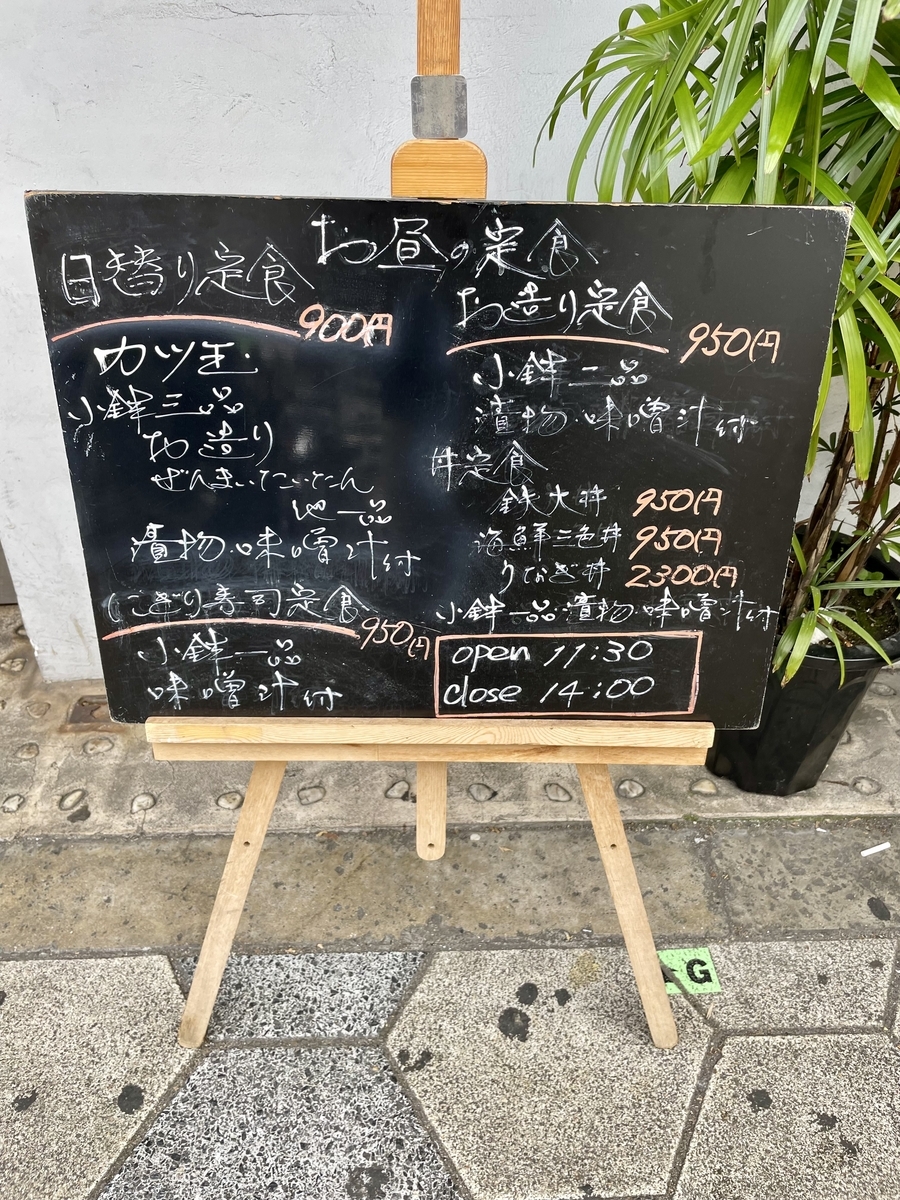 お昼の定食
日替り定食
900円
カツ玉
小鉢三品
お造り
ぜんまいたいたん
他一品
漬物・味噌汁付
にぎり寿司定食
950円
小鉢一品
味噌汁付
お造り定食
950円
小鉢二品
漬物・味噌汁付
丼定食
鉄火丼 950円
海鮮二色丼 950円
うなぎ丼 2300円
小鉢一品・漬物・味噌汁付
open 11:30
close 14:00
G